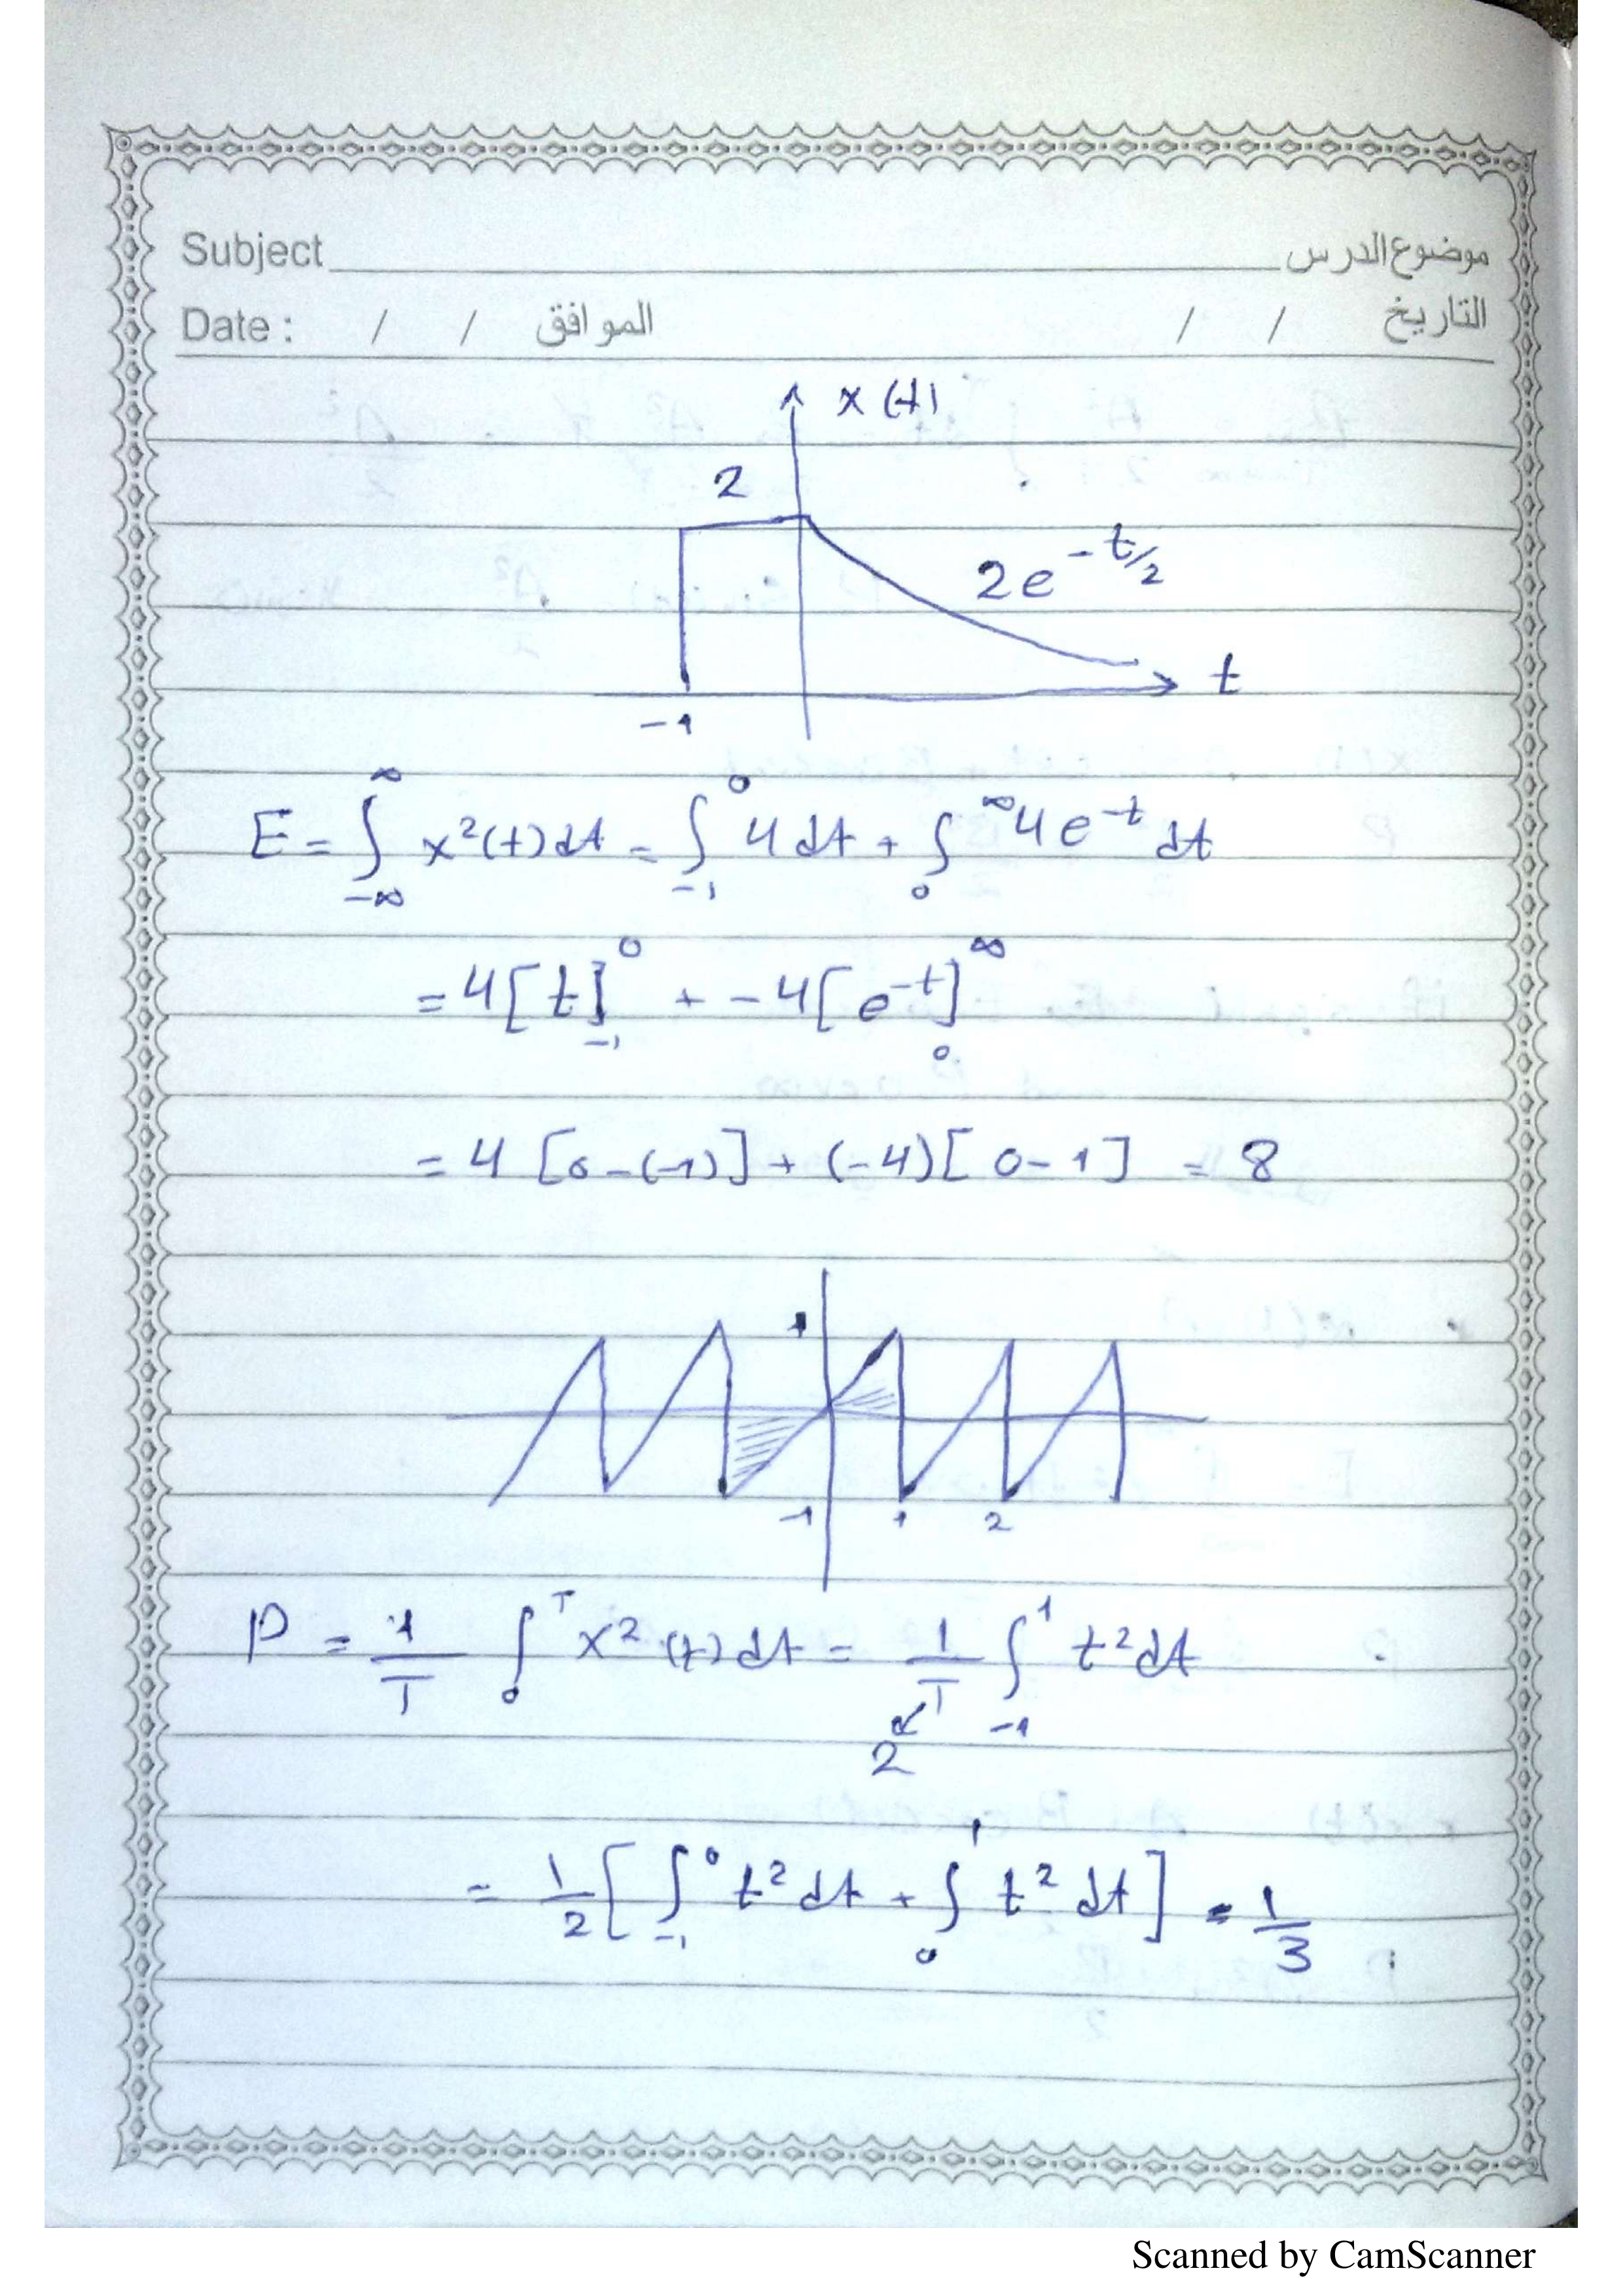 Subject موضوع الدرس
Date : / / الموافق / / التاريخ
x(t)
2
2e^{-t/2}
t
-1
E = ∫_{-∞}^{∞} x²(t)dt = ∫_{-1}^{0} 4dt + ∫_{0}^{∞} 4e^{-t} dt
= 4[t]_{-1}^{0} + -4[e^{-t}]_{0}^{∞}
= 4[0-(-1)] + (-4)[0-1] = 8
1
-1 1 2
P = 1/T ∫_{0}^{T} x²(t)dt = 1/T ∫_{-1}^{1} t²dt
2
= 1/2 [∫_{-1}^{0} t²dt + ∫_{0}^{1} t²dt] = 1/3
Scanned by CamScanner